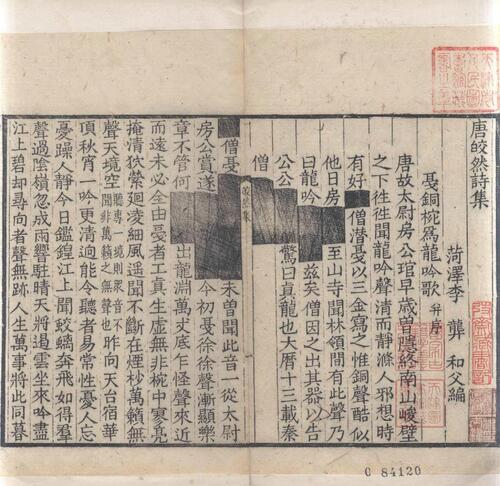 唐皎然詩集
菏澤李龏和父編
戞銅椀爲龍吟歌 并序
唐故太尉房公琯早歲曾隱終南山峻壁
之下徃徃聞龍吟聲清而靜滌人邪想時
有好 僧潛戞以三金寫之惟銅聲酷似
他日房 至山寺聞林領間有此聲乃
曰龍吟 兹矣僧因之出其器以告
公公 驚曰真龍吟也大曆十三載秦
僧
皎然集
僧戞 未曾聞此音 從太尉
房公賞遂 今初戞徐徐聲漸顯樂
章不管何 出龍淵萬丈底乍怪聲來近
而遠未必全由戞者工真生虛無非椀中寥亮
掩清笳縈迴凌細風遥聞不斷在煙杪萬籟無
聲天境空 聽專一境則衆音不聞非萬籟之無聲也 昨向天台宿華
頂秋宵一吟更清迥能令聽者易常性憂人忘
憂躁人靜今日鑑鍠江上聞蛟螭奔飛如得羣
聲過陰嶺忽成雨響駐晴天將遏雲坐來吟盡
江上碧却尋向者聲無跡人生萬事將此同暮
C 84120